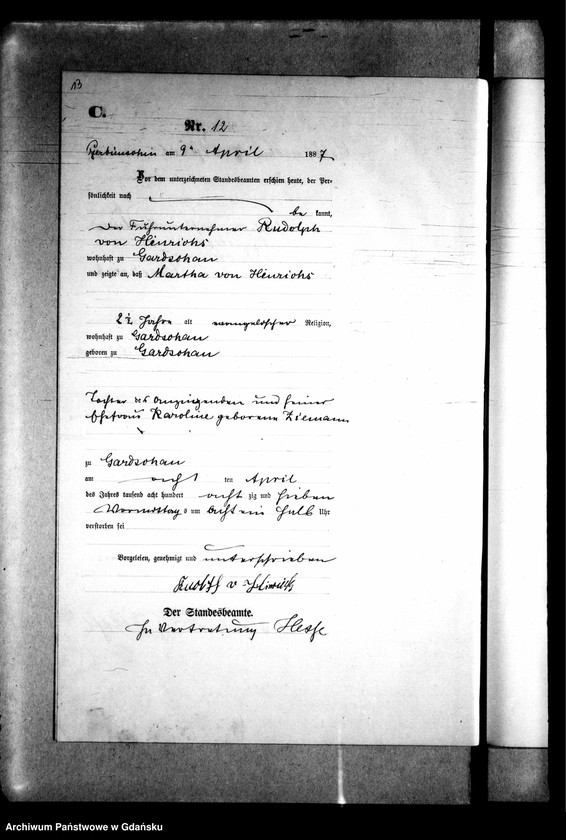 13
C.
Nr. 12
am 9ten April 1887
Vor dem unterzeichneten Standesbeamten erschien heute, der Per-
sönlichkeit nach
be kannt,
der Fuhrunternehmer Rudolph
von Hinrichs
wohnhaft zu Gardschau
und zeigte an, daß Martha von Hinrichs
2½ Jahre alt evangelischer Religion,
wohnhaft zu Gardschau
geboren zu Gardschau
Tochter des Anzeigenden und seiner
Ehefrau Karoline geborene Ziemann
zu Gardschau
am acht ten April
des Jahres tausend acht hundert acht zig und sieben
Vormittags um acht ein halb Uhr
verstorben sei
Vorgelesen, genehmigt und unterschrieben
Rudolf v Hinrichs
Der Standesbeamte.
In Vertretung Hesse
Archiwum Państwowe w Gdańsku